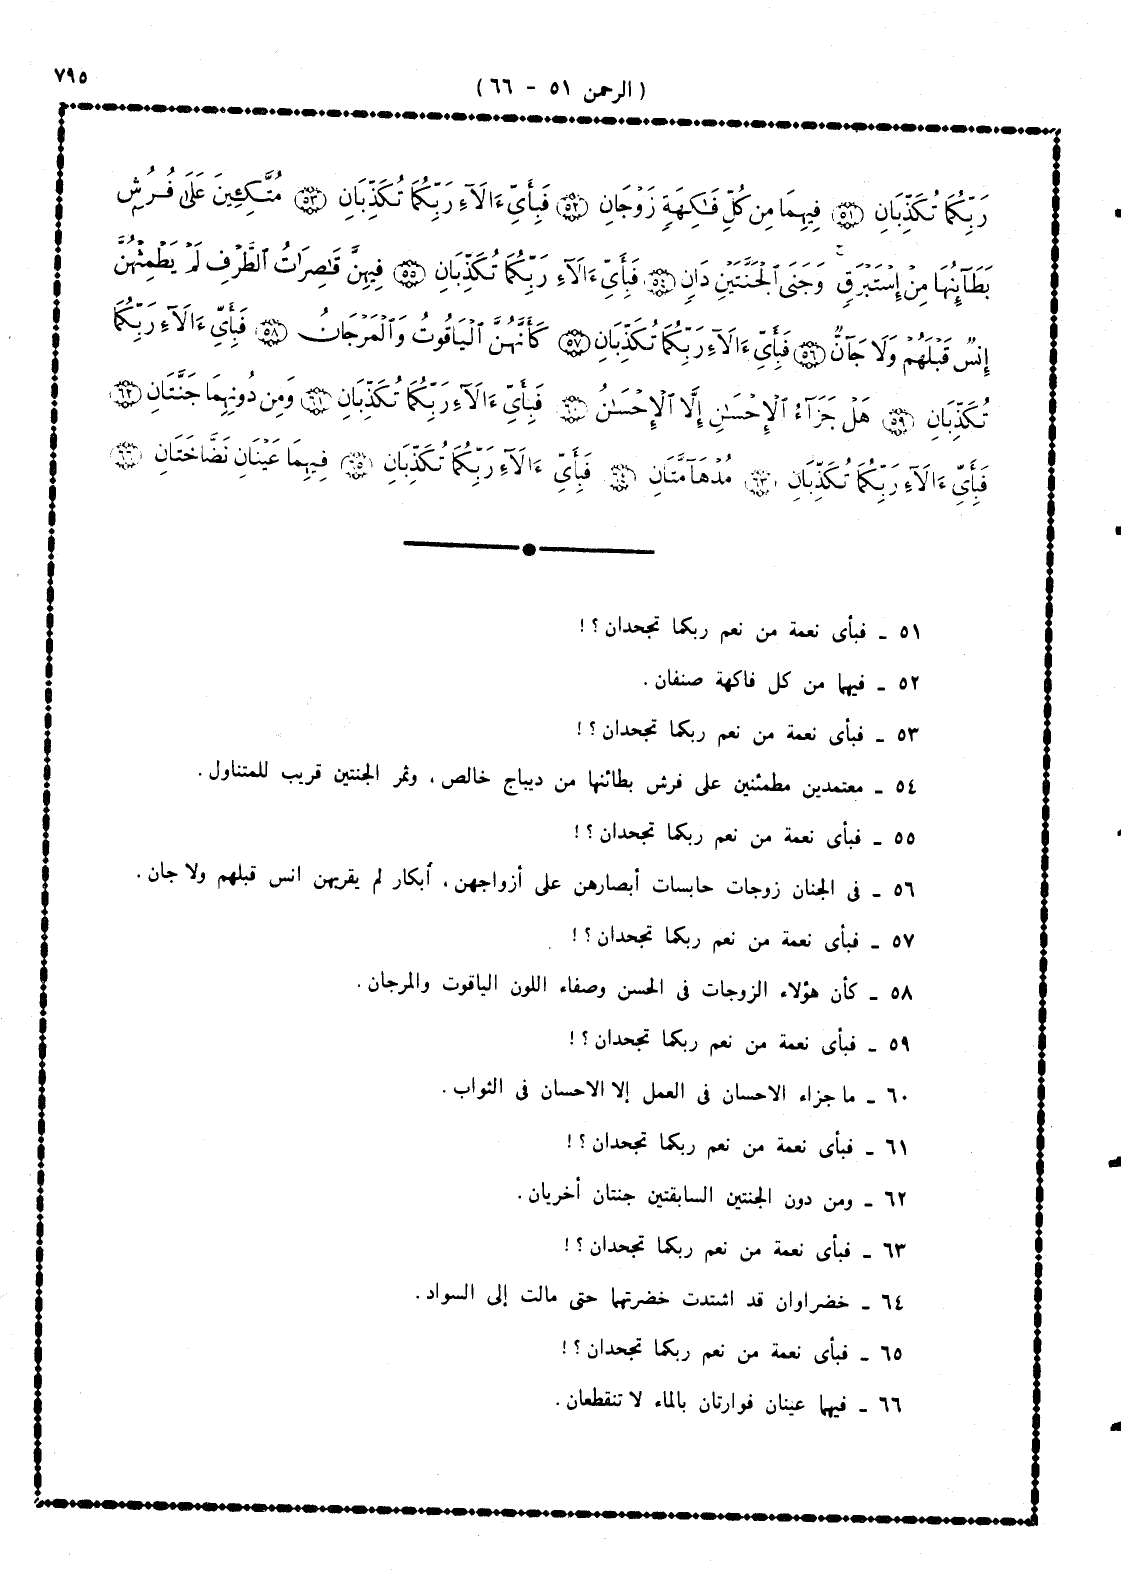 ٧٩٥
( الرحمن ٥١ - ٦٦ )
رَبِّكُمَا تُكَذِّبَانِ ٥١ فِيهِمَا مِن كُلِّ فَـٰكِهَةٍ زَوْجَانِ ٥٢ فَبِأَىِّ ءَالَآءِ رَبِّكُمَا تُكَذِّبَانِ ٥٣ مُتَّكِـِٔينَ عَلَىٰ فُرُشٍۭ
بَطَآئِنُهَا مِنْ إِسْتَبْرَقٍ ۚ وَجَنَى ٱلْجَنَّتَيْنِ دَانٍ ٥٤ فَبِأَىِّ ءَالَآءِ رَبِّكُمَا تُكَذِّبَانِ ٥٥ فِيهِنَّ قَـٰصِرَٰتُ ٱلطَّرْفِ لَمْ يَطْمِثْهُنَّ
إِنسٌ قَبْلَهُمْ وَلَا جَآنٌّ ٥٦ فَبِأَىِّ ءَالَآءِ رَبِّكُمَا تُكَذِّبَانِ ٥٧ كَأَنَّهُنَّ ٱلْيَاقُوتُ وَٱلْمَرْجَانُ ٥٨ فَبِأَىِّ ءَالَآءِ رَبِّكُمَا
تُكَذِّبَانِ ٥٩ هَلْ جَزَآءُ ٱلْإِحْسَـٰنِ إِلَّا ٱلْإِحْسَـٰنُ ٦٠ فَبِأَىِّ ءَالَآءِ رَبِّكُمَا تُكَذِّبَانِ ٦١ وَمِن دُونِهِمَا جَنَّتَانِ ٦٢
فَبِأَىِّ ءَالَآءِ رَبِّكُمَا تُكَذِّبَانِ ٦٣ مُدْهَآمَّتَانِ ٦٤ فَبِأَىِّ ءَالَآءِ رَبِّكُمَا تُكَذِّبَانِ ٦٥ فِيهِمَا عَيْنَانِ نَضَّاخَتَانِ ٦٦
٥١ ـ فبأى نعمة من نعم ربكما تجحدان ؟ !
٥٢ ـ فيهما من كل فاكهة صنفان .
٥٣ ـ فبأى نعمة من نعم ربكما تجحدان ؟ !
٥٤ ـ معتمدين مطمئنين على فرش بطائنها من ديباج خالص ، وثمر الجنتين قريب للمتناول .
٥٥ ـ فبأى نعمة من نعم ربكما تجحدان ؟ !
٥٦ ـ فى الجنان زوجات حابسات أبصارهن على أزواجهن ، أبكار لم يقربهن انس قبلهم ولا جان .
٥٧ ـ فبأى نعمة من نعم ربكما تجحدان ؟ !
٥٨ ـ كأن هؤلاء الزوجات فى الحسن وصفاء اللون الياقوت والمرجان .
٥٩ ـ فبأى نعمة من نعم ربكما تجحدان ؟ !
٦٠ ـ ما جزاء الاحسان فى العمل إلا الاحسان فى الثواب .
٦١ ـ فبأى نعمة من نعم ربكما تجحدان ؟ !
٦٢ ـ ومن دون الجنتين السابقتين جنتان أخريان .
٦٣ ـ فبأى نعمة من نعم ربكما تجحدان ؟ !
٦٤ ـ خضراوان قد اشتدت خضرتهما حتى مالت إلى السواد .
٦٥ ـ فبأى نعمة من نعم ربكما تجحدان ؟ !
٦٦ ـ فيهما عينان فوارتان بالماء لا تنقطعان .